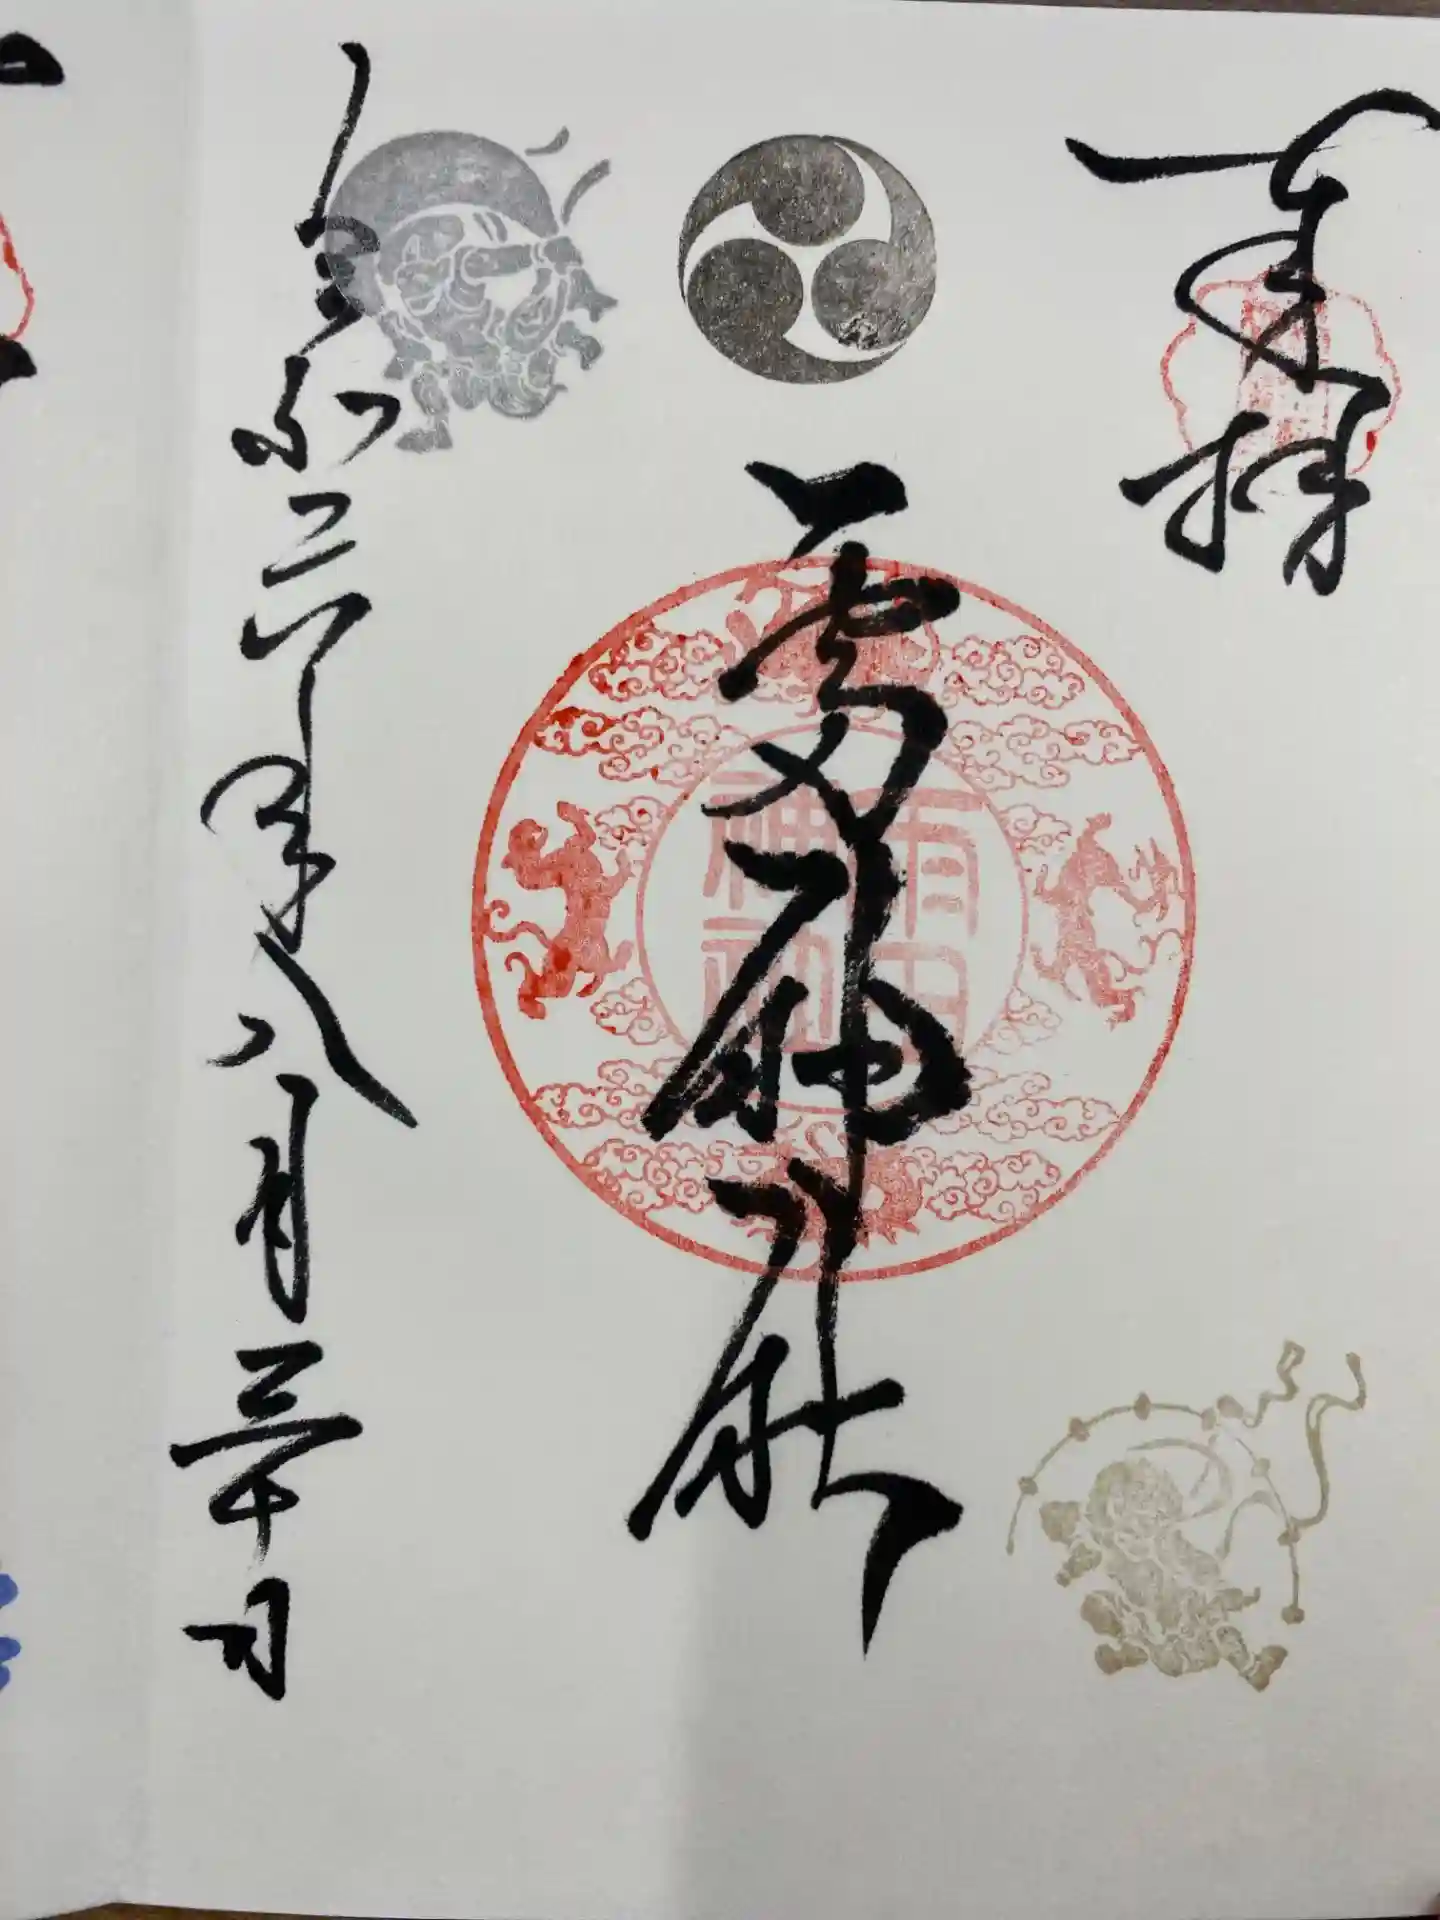 奉拝
雷神社
雷神社
令和六年八月三十日